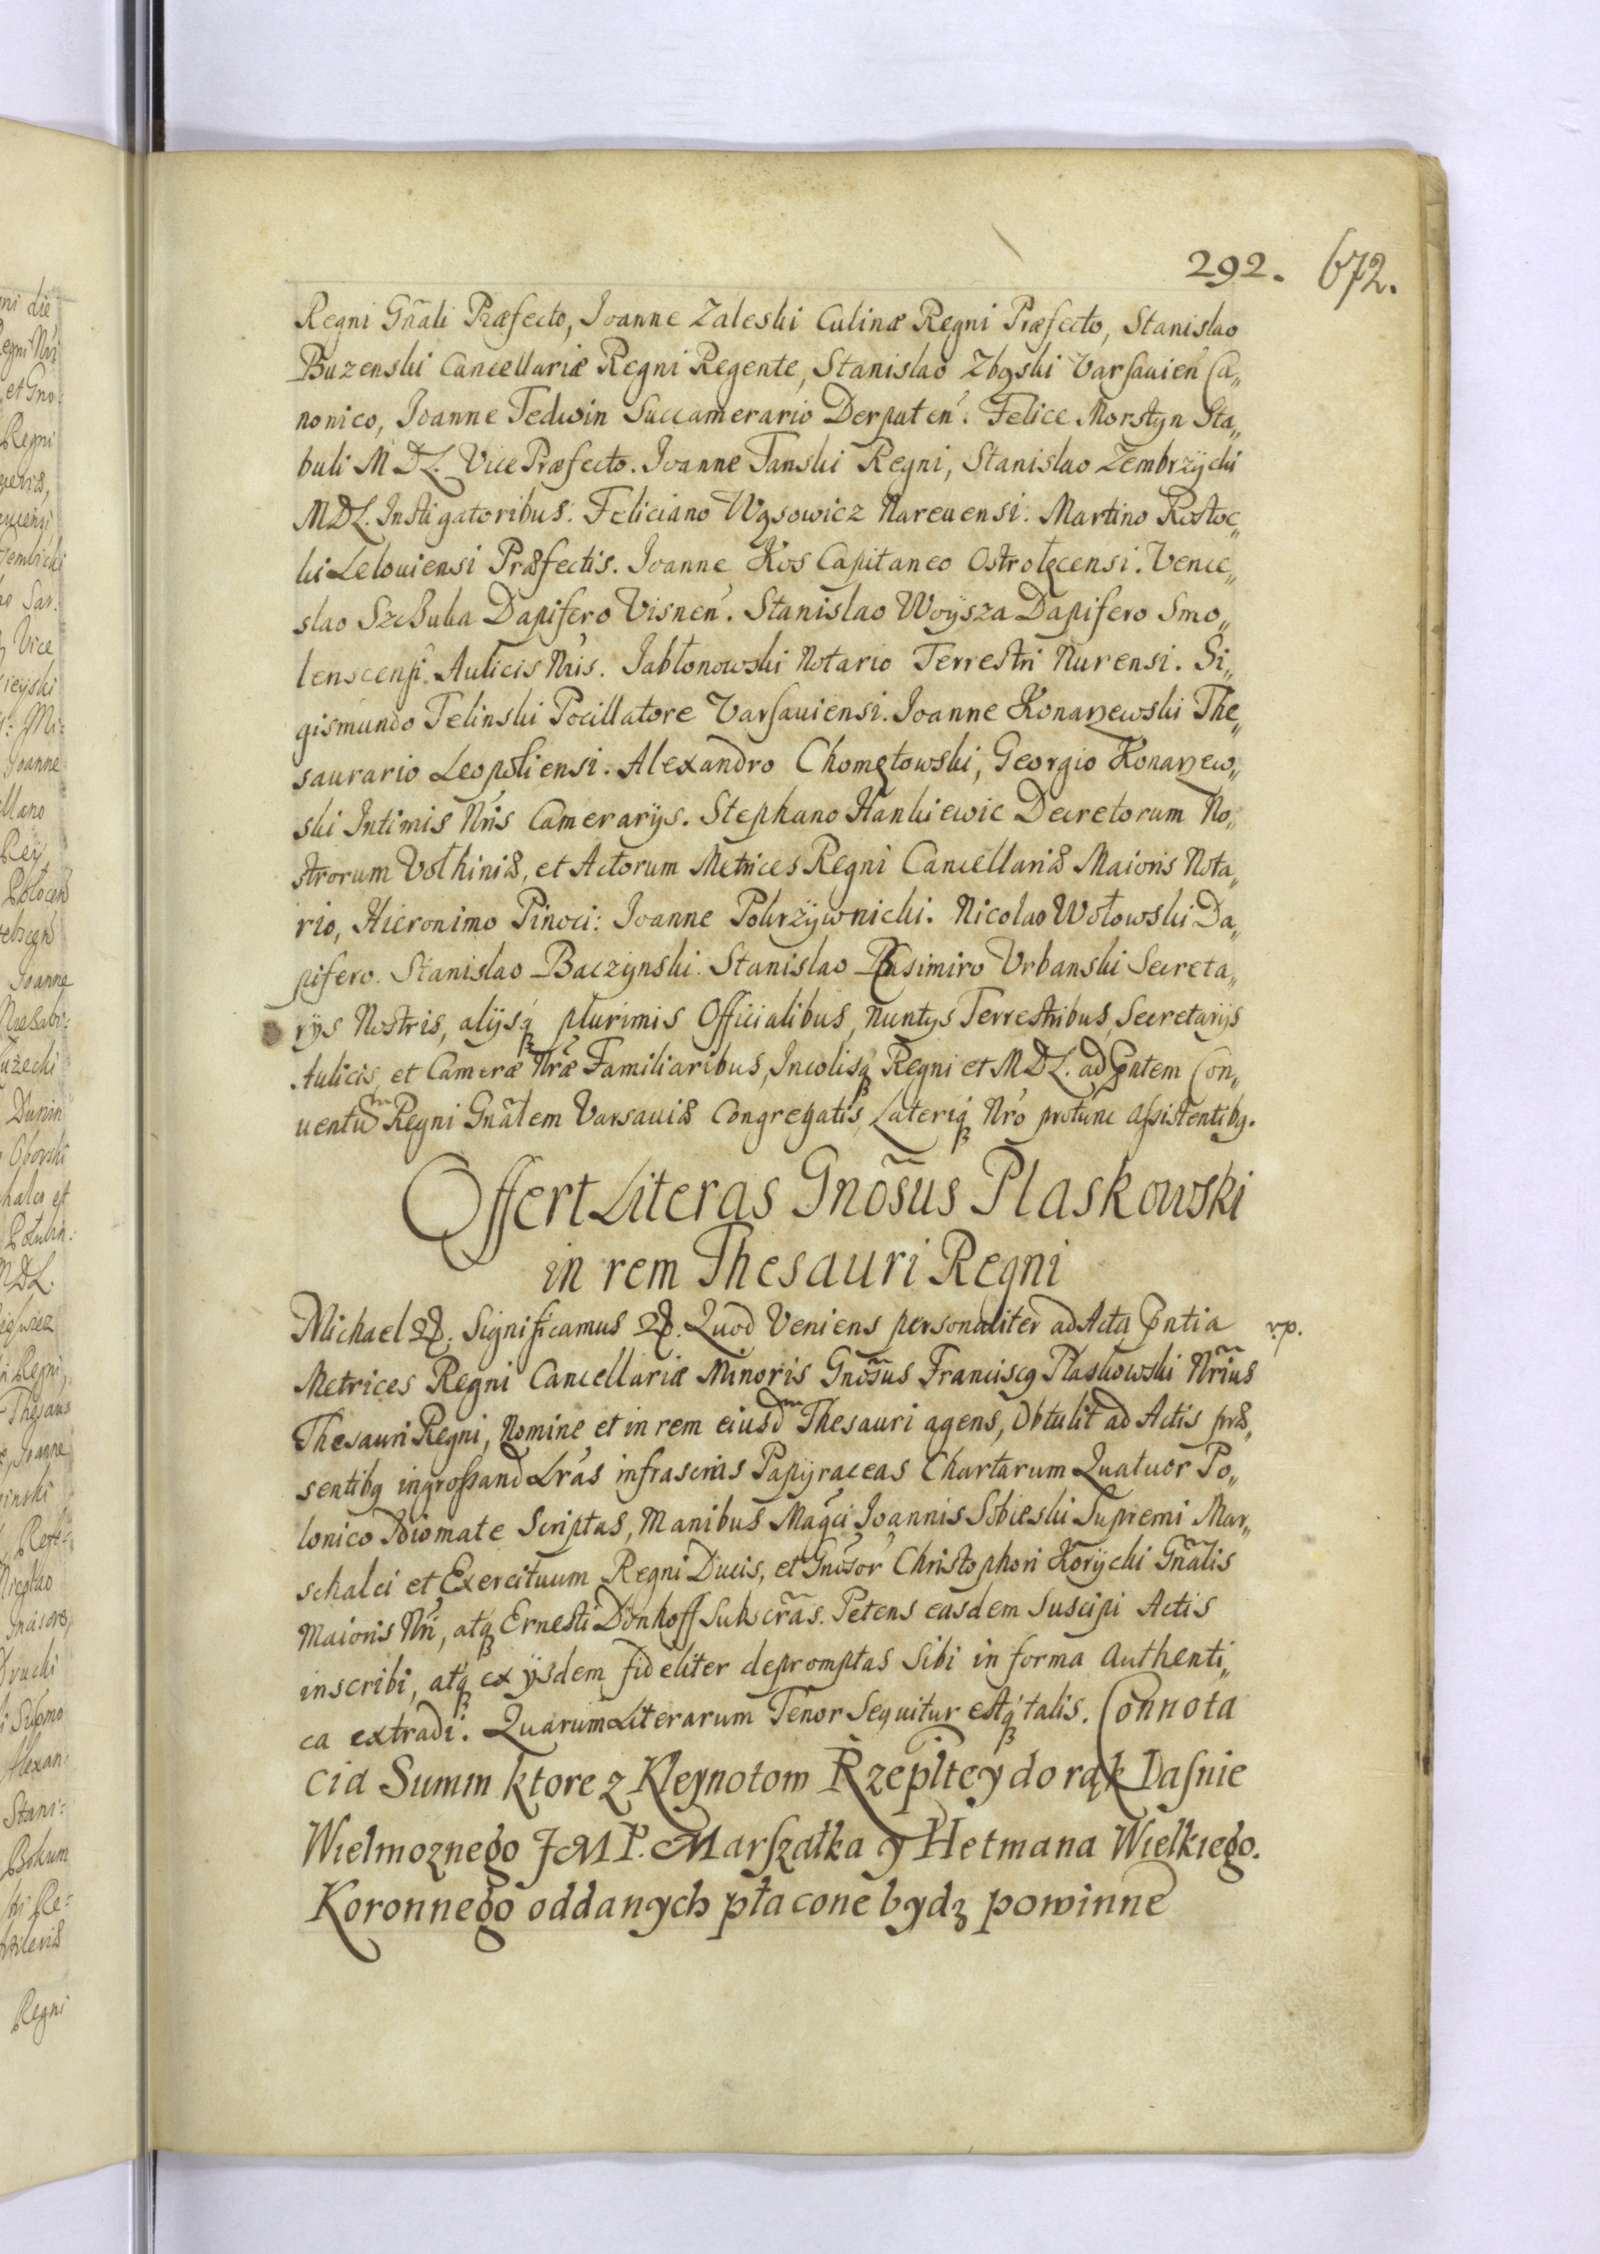 292. 672.
Regni Gñali Præfecto, Joanne Zaleski Culinæ Regni Præfecto, Stanislao
Buzenski Cancellariæ Regni Regente, Stanislao Zbąski Varsauien Ca„
nonico, Joanne Tedwin Succamerario Derpaten. Felice Morstyn Sta„
buli MDL. Vice Præfecto. Joanne Tanski Regni, Stanislao Zembrzÿcki
MDL. Instigatoribus. Feliciano Wąsowicz Nareuensi. Martino Rostoc„
ki Lelouiensi Præfectis. Joanne Kos Capitaneo Ostrołęcensi. Vence„
slao Szczuka Dapifero Visnen. Stanislao Woÿsza Dapifero Smo„
lenscensi. Aulicis Nris. Jabłonowski Notario Terrestri Nurensi. Si„
gismundo Telinski Pocillatore Varsauiensi. Joanne Konarzewski The„
saurario Leopoliensi. Alexandro Chomętowski, Georgio Konarzew„
ski Intimis Nris Camerarijs. Stephano Hankiewic Decretorum No„
strorum Volhiniæ, et Actorum Metrices Regni Cancellariæ Maioris Nota„
rio, Hieronimo Pinoci: Joanne Pokrzÿwnicki. Nicolao Wołowski Da„
pifero. Stanislao Baczynski. Stanislao Casimiro Vrbanski Secreta„
rijs Nostris, alijsq plurimis Officialibus, Nuntijs Terrestribus, Secretarijs
Aulicis, et Cameræ Nræ Familiaribus, Incolisq Regni et MDL. ad Pntem Con„
uentum Regni Gñalem Varsauiæ Congregatis, Lateriq Nro protunc assistentibq.
Offert Literas Gnõsus Plaskowski
in rem Thesauri Regni
Michael &. Significamus &. Quod Veniens personaliter ad Acta Pntia rp.
Metrices Regni Cancellariæ Minoris Gnõsus Franciscq Plaskowski Nrius
Thesauri Regni, Nomine et in rem eiusdm Thesauri agens, Obtulit ad Actis præ„
sentibq ingrossand Lras infrascrias Papÿraceas Chartarum Quatuor Po„
lonico Idiomate Scriptas, Manibus Magci Joannis Sobieski Supremi Mar„
schalci et Exercituum Regni Ducis, et Gnosor Christophori Korÿcki Gñalis
Maioris Nri, atq Ernesti Donhoff Subscras. Petens easdem Suscipi Actis
inscribi, atq ex ÿsdem fideliter depromptas Sibi in forma Authenti„
ca extradi. Quarum Literarum Tenor Sequitur estq talis. Connota
cia Summ ktore z Kleynotom Rzepltey do rąk Jasnie
Wielmoznego JMP. Marszałka y Hetmana Wielkiego.
Koronnego oddanych płacone bydz powinne